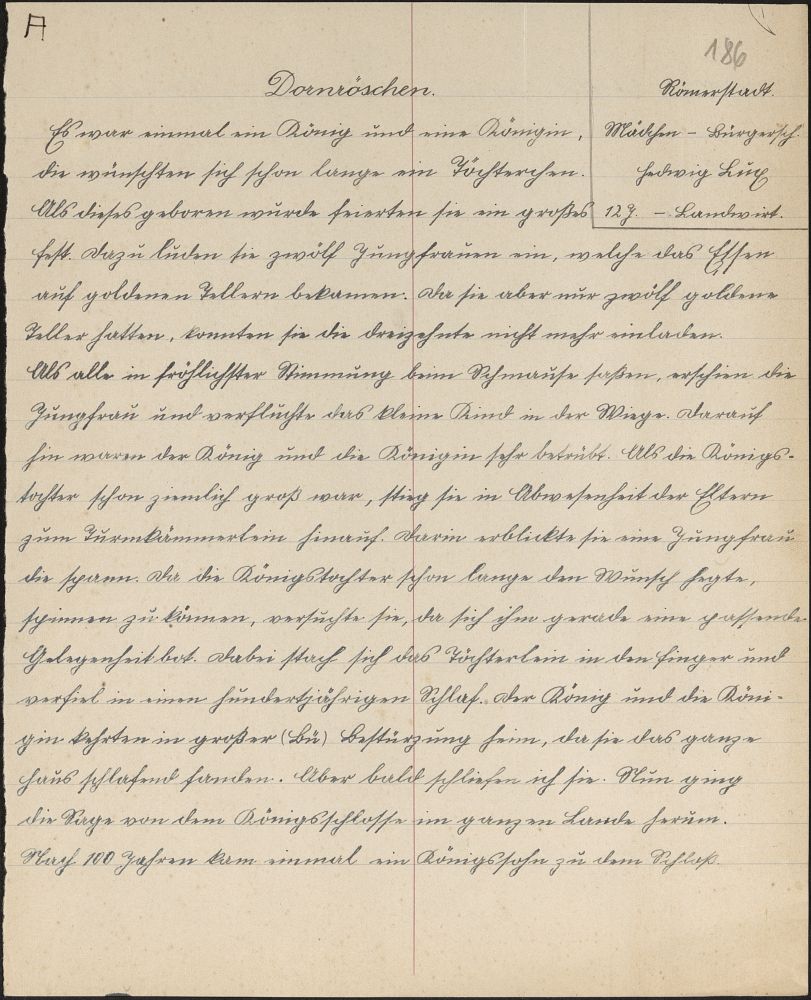 A
186
Dornröschen.
Römerstadt.
Mädchen – Bürgersch.
Hedwig Lux
12 J. – Landwirt.
Es war einmal ein König und eine Königin,
die wünschten sich schon lange ein Töchterchen.
Als dieses geboren wurde feierten sie ein großes
Fest. Dazu luden sie zwölf Jungfrauen ein, welche das Essen
auf goldenen Tellern bekamen. Da sie aber nur zwölf goldene
Teller hatten, konnten sie die dreizehnte nicht mehr einladen.
Als alle in fröhlichster Stimmung beim Schmause saßen, erschien die
Jungfrau und verfluchte das kleine Kind in der Wiege. Darauf
hin waren der König und die Königin sehr betrübt. Als die Königs-
tochter schon ziemlich groß war, stieg sie in Abwesenheit der Eltern
zum Turmkämmerlein hinauf. Darin erblickte sie eine Jungfrau
die spann. Da die Königstochter schon lange den Wunsch hegte,
spinnen zu können, versuchte sie, da sich ihm gerade eine passende
Gelegenheit bot. Dabei stach sich das Töchterlein in den Finger und
verfiel in einen hundertjährigen Schlaf. Der König und die Köni-
gin kehrten in großer (Bü) Bestürzung heim, da sie das ganze
Haus schlafend fanden. Aber bald schliefen ich sie. Nun ging
die Sage von dem Königsschlosse im ganzen Lande herum.
Nach 100 Jahren kam einmal ein Königssohn zu dem Schloß.